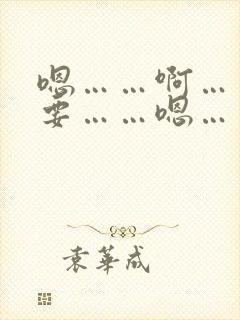 嗯……啊…
要……嗯…
袁華成